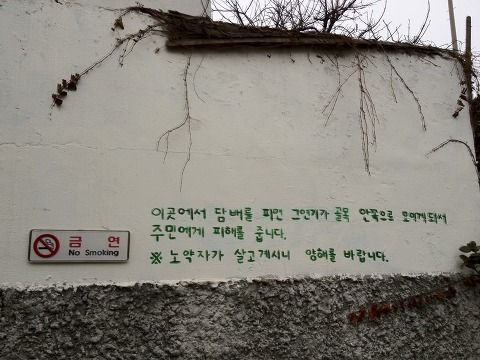 이곳에서 담배를 피면 그연기가 골목 안쪽으로 모이게되어
주민에게 피해를 줍니다.
※ 노약자가 살고계시니 양해를 바랍니다.
금연
No Smoking